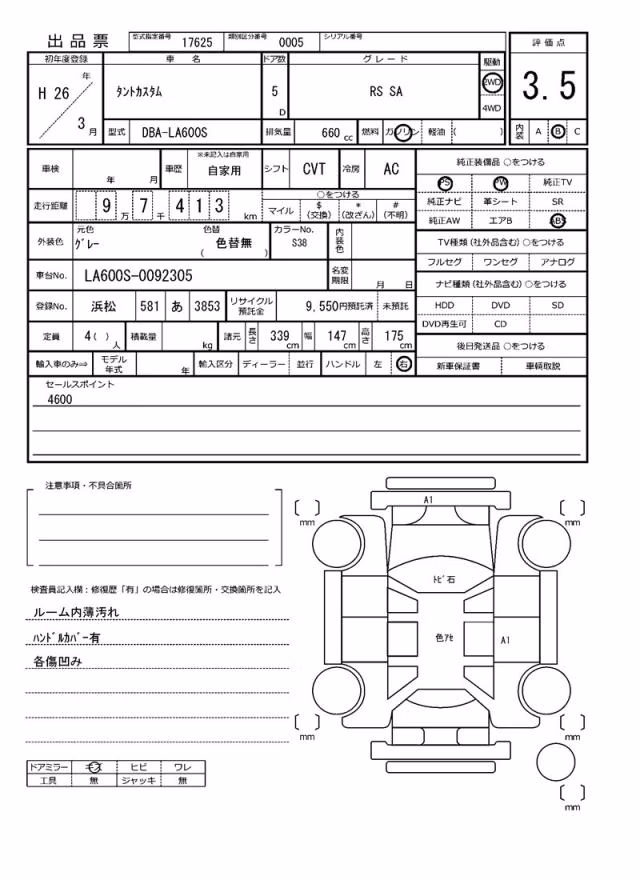 出品票
型式指定番号 17625 類別区分番号 0005 シリアル番号
評価点
3.5
内装 A B C
初年度登録 車名 ドア数 グレード 駆動
H 26 年 3 月
タントカスタム 5 D RS SA 2WD 4WD
型式 DBA-LA600S 排気量 660 cc 燃料 ガソリン 軽油 ( )
車検 年 月 車歴 ※未記入は自家用 自家用 シフト CVT 冷房 AC
走行距離 9万 7千 4 1 3 km
○をつける
マイル $(交換) *(改ざん) #(不明)
外装色 元色 グレー 色替 ( 色替無 ) カラーNo. S38 内装色
車台No. LA600S-0092305 名変期限 月 日
登録No. 浜松 581 あ 3853 リサイクル預託金 9,550円預託済 未預託
定員 4( )人 積載量 kg 諸元 長さ 339cm 幅 147cm 高さ 175cm
輸入車のみ⇒ モデル年式 年 輸入区分 ディーラー 並行 ハンドル 左 右
純正装備品 ○をつける
PS PW 純正TV
純正ナビ 革シート SR
純正AW エアB ABS
TV種類(社外品含む)○をつける
フルセグ ワンセグ アナログ
ナビ種類(社外品含む)○をつける
HDD DVD SD
DVD再生可 CD
後日発送品 ○をつける
新車保証書 車輌取説
セールスポイント
4600
注意事項・不具合箇所
検査員記入欄：修復歴「有」の場合は修復箇所・交換箇所を記入
ルーム内薄汚れ
ハンドルカバー有
各傷凹み
ドアミラー キズ ヒビ ワレ
工具 無 ジャッキ 無
A1
mm
mm
トビ石
色アセ
A1
mm
mm
mm